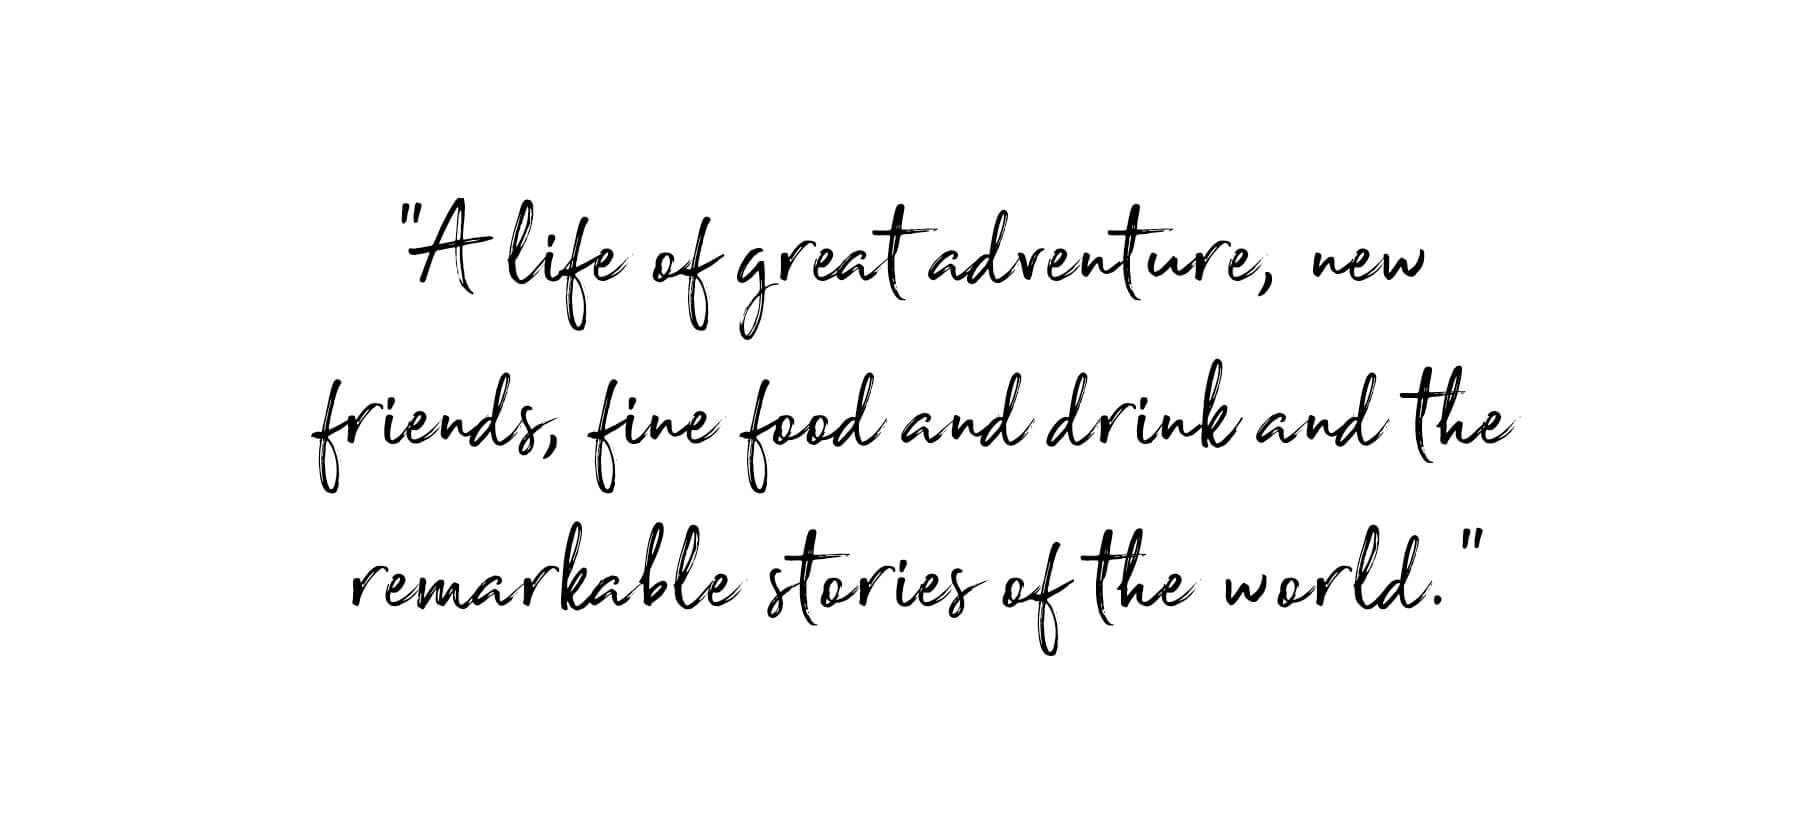 "A life of great adventure, new
friends, fine food and drink and the
remarkable stories of the world."